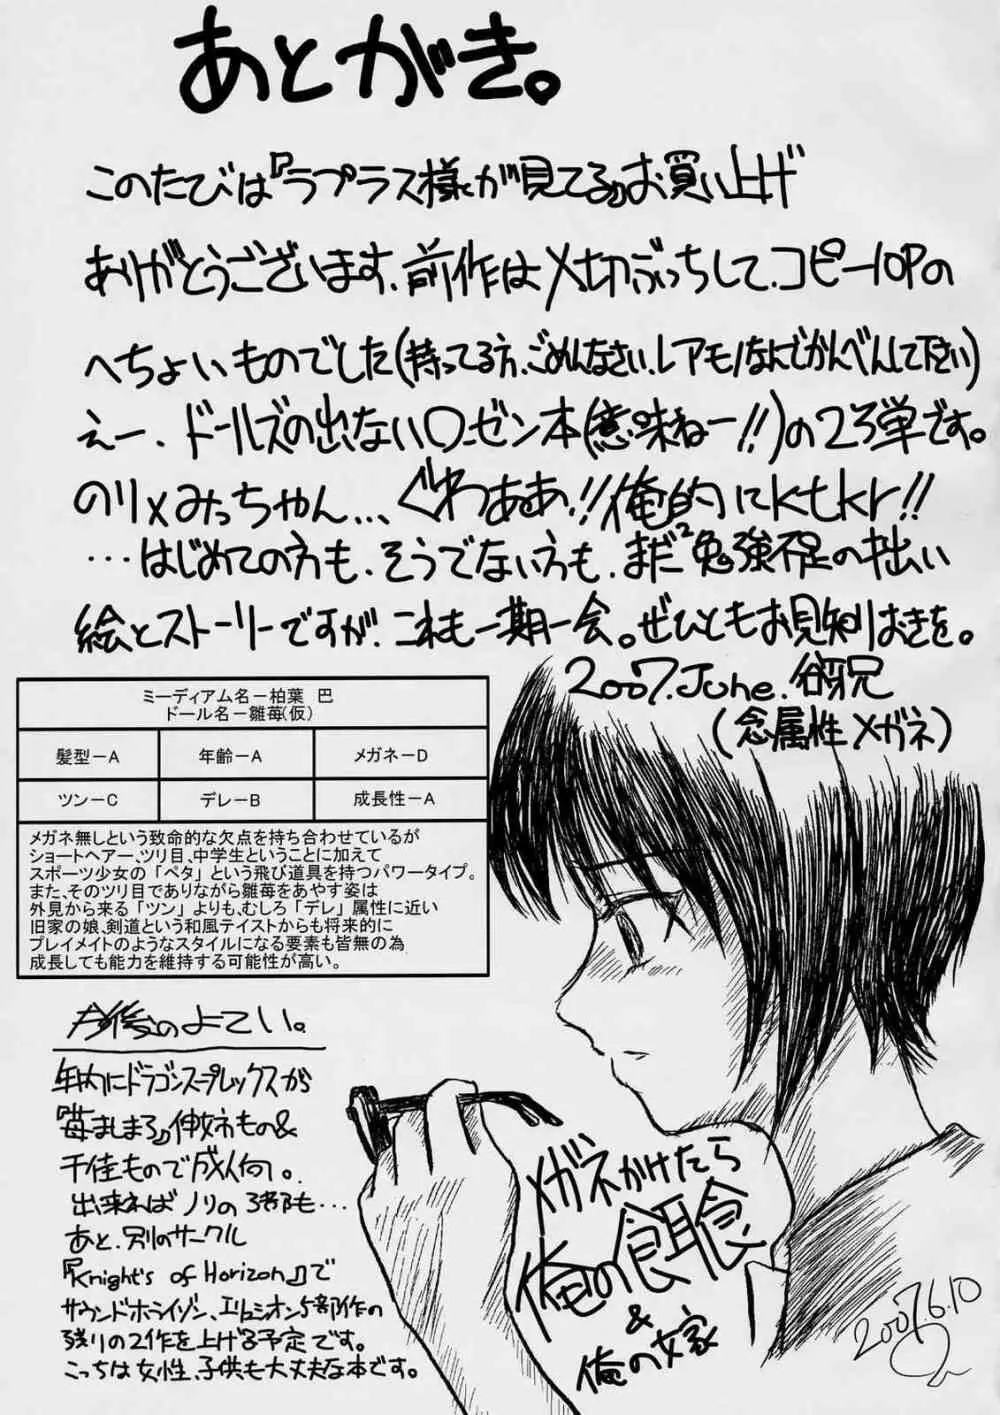 あとがき。
このたびは『ラプラス様が見てる』お買い上げ
ありがとうございます。前作は〆切ぶっちして、コピー10Pの
へちょいものでした(持ってる方、ごめんなさい、レアモノなんでかんべんして下さい)
えー、ドールズの出ないローゼン本(意味ねー!!)の2る弾です。
のり×みっちゃん…、ぐわぁぁ!!俺的にktkr!!
…はじめての方も、そうでない方も、まだ²勉強不足の拙い
絵とストーリーですが、これも一期一会。ぜひともお見知りおきを。
2007.June.谷牙兄
(念属性メガネ)
ミーディアム名－柏葉 巴
ドール名－雛苺(仮)
髪型－A 年齢－A メガネ－D
ツン－C デレ－B 成長性－A
メガネ無しという致命的な欠点を持ち合わせているが
ショートヘアー、ツリ目、中学生ということに加えて
スポーツ少女の「ペタ」という飛び道具を持つパワータイプ。
また、そのツリ目でありながら雛苺をあやす姿は
外見から来る「ツン」よりも、むしろ「デレ」属性に近い
旧家の娘、剣道という和風テイストからも将来的に
プレイメイトのようなスタイルになる要素も皆無の為
成長しても能力を維持する可能性が高い。
今後のよてい。
年内にドラゴンスープレックスから
『苺ましまろ』伸姉もの&
千佳もので成人向。
出来ればノリの3部も…
あと、別のサークル
『Knight's of Horizon』で
サウンドホライゾン、エリュシオン5部作の
残りの2作を上げる予定です。
こっちは女性、子供も大丈夫な本です。
メガネかけたら
俺の餌食
&
俺の嫁
2007.6.10